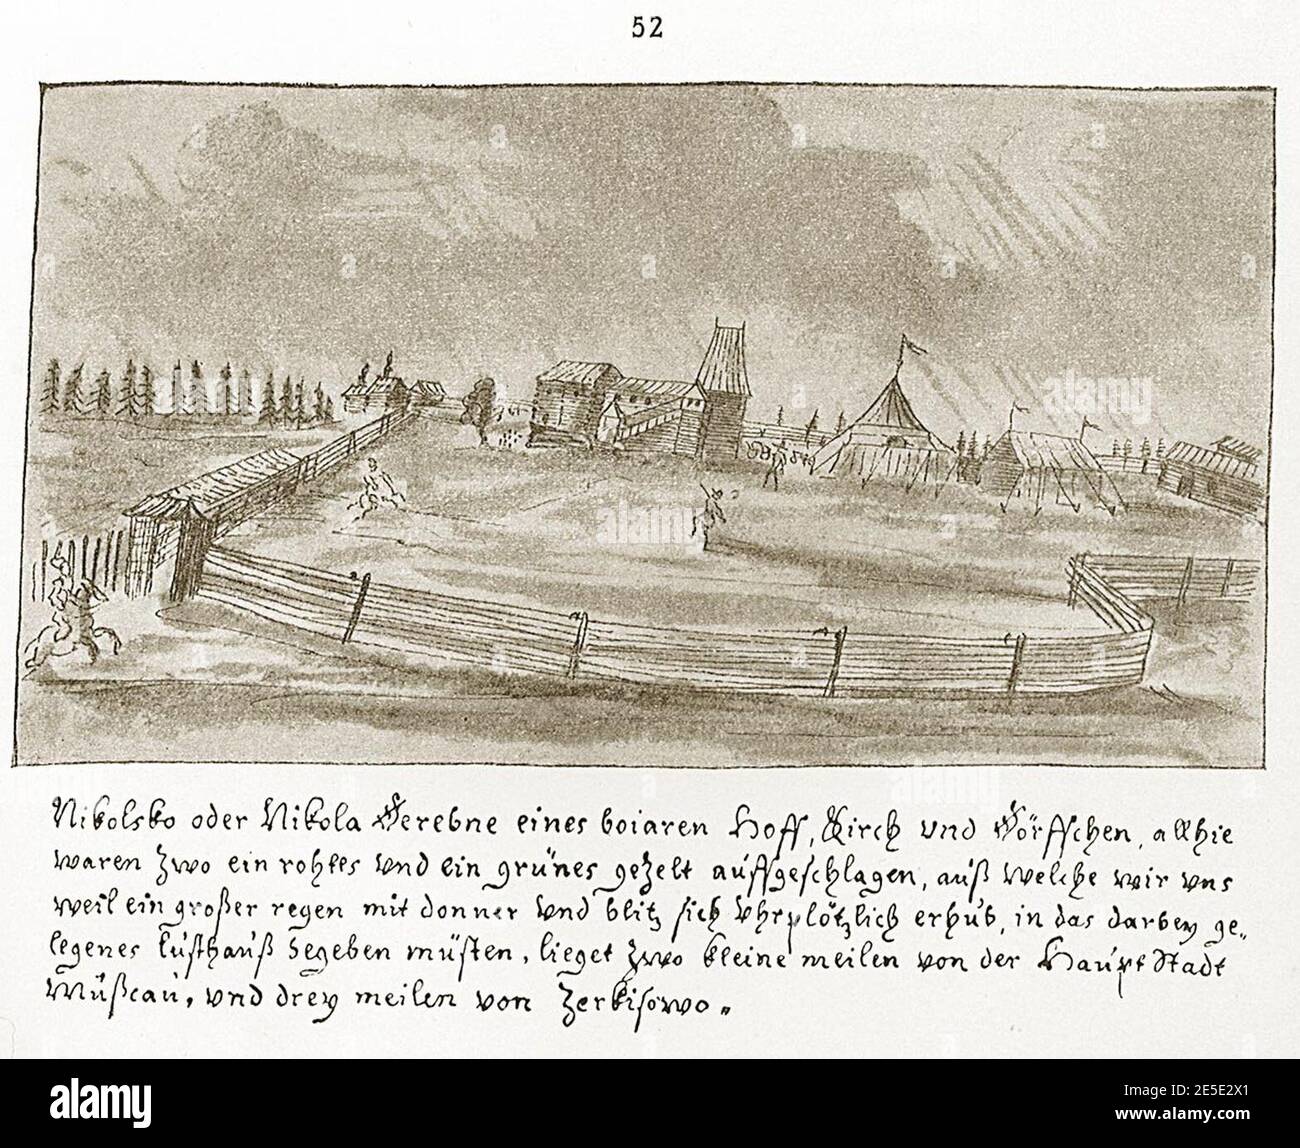 52
Nikolsko oder Nikola Derebne eines boiaren Hoff, Kirch vnd Dörffschen, allhie
waren zwo ein rohtes vnd ein grünes gezelt auffgeschlagen, auß welche wir vns
weil ein großer regen mit donner vnd blitz sich vhrplötzlich erhub, in das darbey ge„
legenes lusthauß begeben müsten, lieget zwo kleine meilen von der Haupt Stadt
Mußcau, vnd drey meilen von Zerkisowo„
alamy
Image ID: 2E5E2X1
www.alamy.com